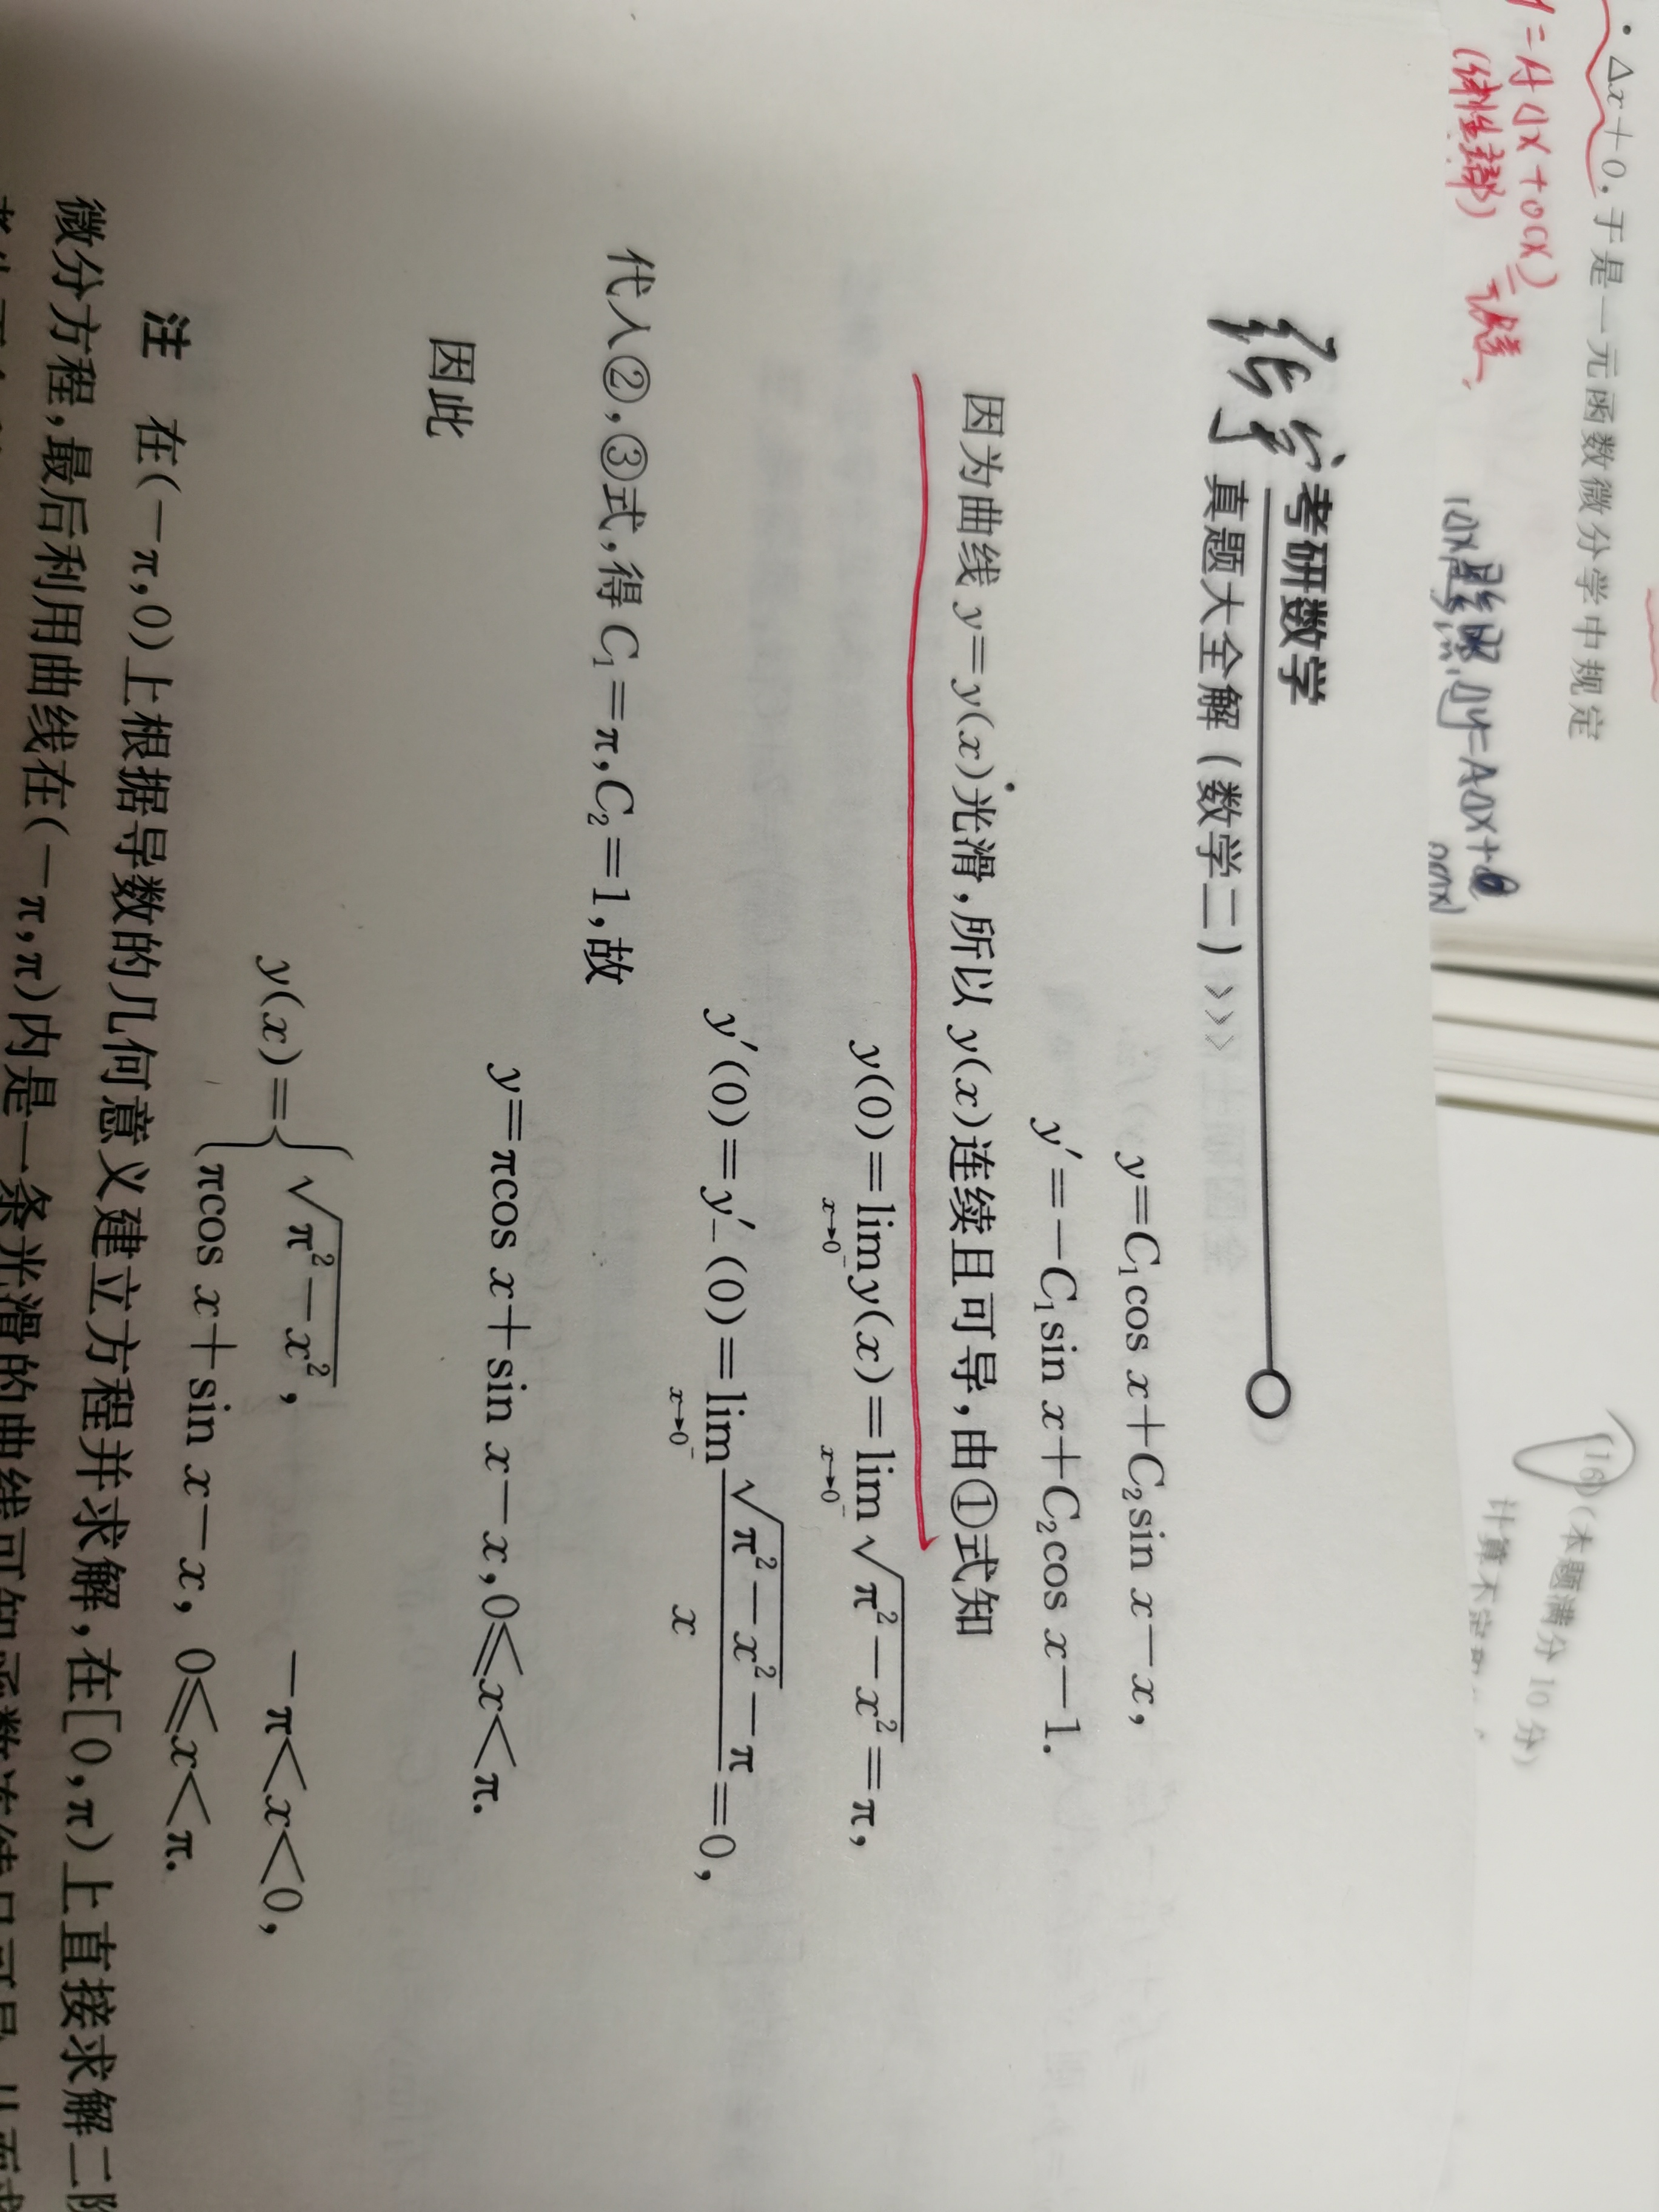 ·Δx+0,于是一元函数微分学中规定
y=AΔx+o(Δx)
(线性主部)
(16)(本题满分10分)
计算不定
张宇考研数学
真题大全解(数学二)>>>
y=C₁cos x+C₂sin x−x,
y′=−C₁sin x+C₂cos x−1.
因为曲线 y=y(x)光滑,所以 y(x)连续且可导,由①式知
y(0)=lim_{x→0⁻}y(x)=lim_{x→0⁻}√(π²−x²)=π,
y′(0)=y′₋(0)=lim_{x→0⁻}(√(π²−x²)−π)/x=0,
代入②,③式,得 C₁=π,C₂=1,故
y=πcos x+sin x−x,0≤x<π.
因此
y(x)={√(π²−x²), −π<x<0,
πcos x+sin x−x, 0≤x<π.
注 在(−π,0)上根据导数的几何意义建立方程并求解,在[0,π)上直接求解二阶
微分方程,最后利用曲线在(−π,π)内是一条光滑的曲线可知函数连续且可导,从而求